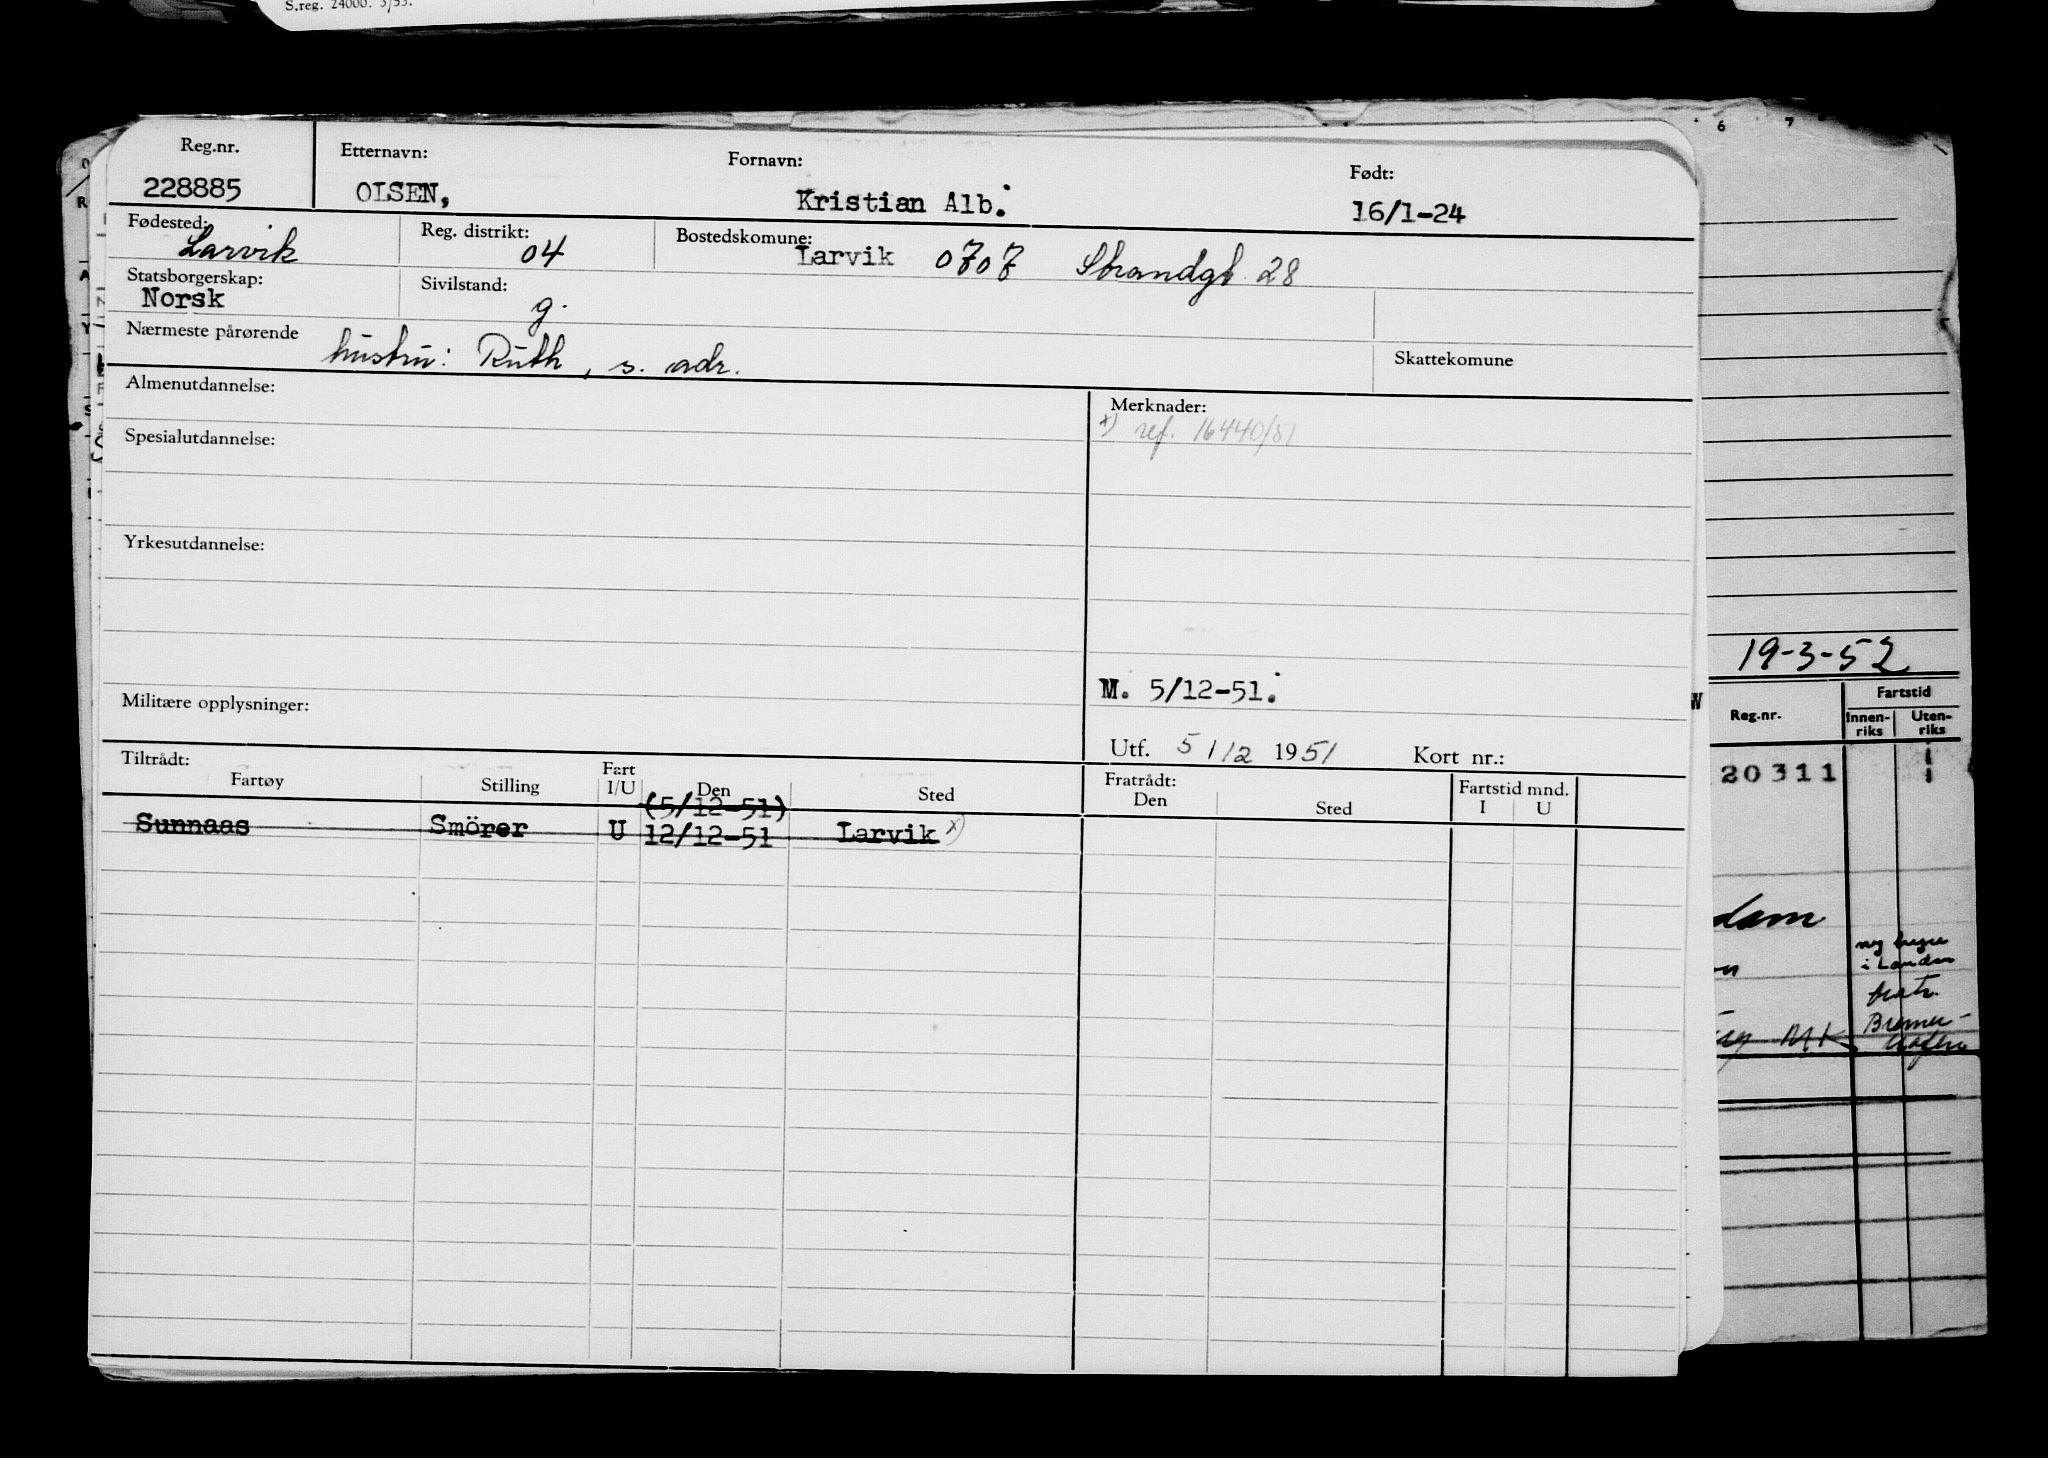 S.reg. 24000. 3/53.
6 7
Reg.nr. Etternavn: Fornavn: Født:
228885 OLSEN, Kristian Alb. 16/1-24
Fødested: Larvik Reg. distrikt: 04 Bostedskomune: Larvik 0707 Strandgt 28
Statsborgerskap: Norsk Sivilstand: g.
Nærmeste pårørende hustru: Ruth, s. adr. Skattekomune
Almenutdannelse: Merknader:
x) ref. 16440/51
Spesialutdannelse:
Yrkesutdannelse:
M. 5/12-51.
Militære opplysninger:
Utf. 5/12 1951 Kort nr.:
Tiltrådt: Fratrådt:
Fartøy Stilling Fart I/U Den Sted Den Sted Fartstid mnd. I U
(5/12-51)
Sunnaas Smörer U 12/12-51 Larvik x)
19-3-52
Reg.nr. Fartstid
Innen-riks Uten-riks
20311
dam
i London
fratr.